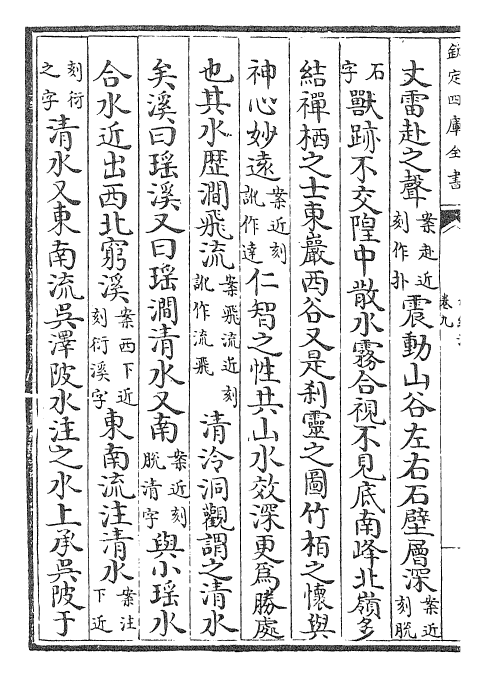 欽定四庫全書
卷九
丈雷赴之聲案赴近刻作扑震動山谷左右石壁層深案近刻脫
石字獸跡不交隍中散水霧合視不見底南峰北嶺多
結禪栖之士東巖西谷又是刹靈之圖竹栢之懷與
神心妙遠案近刻訛作達仁智之性共山水效深更爲勝處
也其水歴澗飛流案飛流近刻訛作流飛清泠洞觀謂之清水
矣溪曰瑶溪又曰瑶澗清水又南案近刻脫清字與小瑶水
合水近出西北窮溪案西下近刻衍溪字東南流注清水案注下近
刻衍之字清水又東南流吳澤陂水注之水上承吳陂于